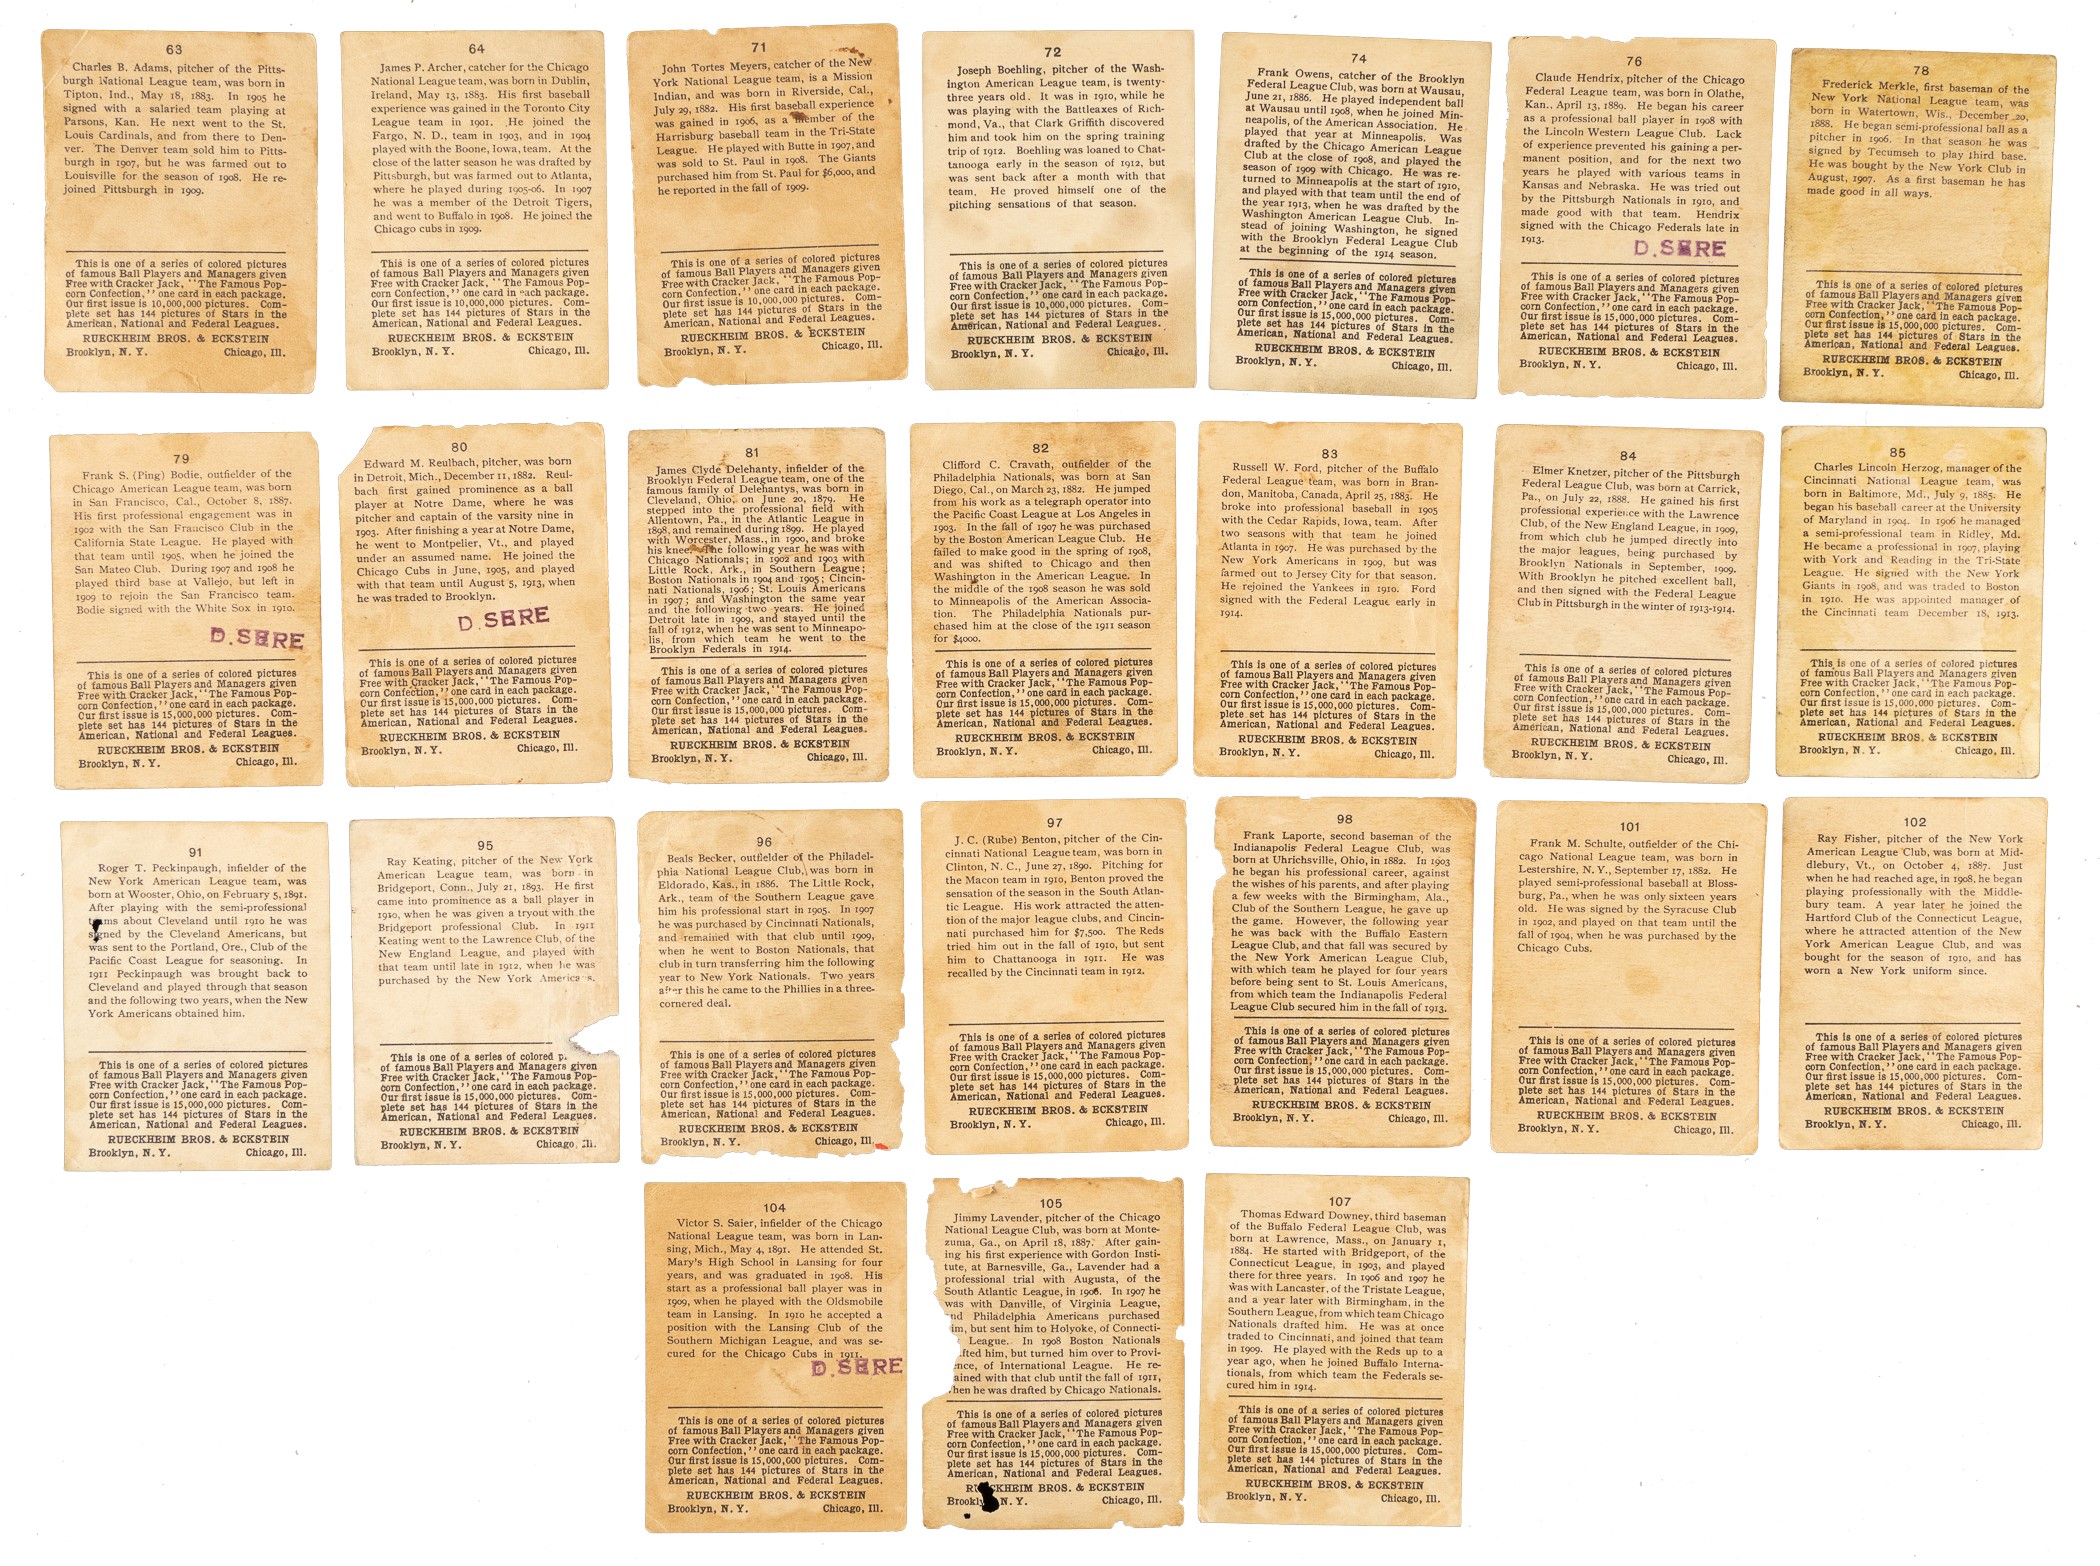 63
Charles B. Adams, pitcher of the Pitts-
burgh National League team, was born in
Tipton, Ind., May 18, 1883. In 1905 he
signed with a salaried team playing at
Parsons, Kan. He next went to the St.
Louis Cardinals, and from there to Den-
ver. The Denver team sold him to Pitts-
burgh in 1907, but he was farmed out to
Louisville for the season of 1908. He re-
joined Pittsburgh in 1909.
This is one of a series of colored pictures
of famous Ball Players and Managers given
Free with Cracker Jack, "The Famous Pop-
corn Confection," one card in each package.
Our first issue is 10,000,000 pictures. Com-
plete set has 144 pictures of Stars in the
American, National and Federal Leagues.
RUECKHEIM BROS. & ECKSTEIN
Brooklyn, N. Y. Chicago, Ill.
64
James P. Archer, catcher for the Chicago
National League team, was born in Dublin,
Ireland, May 13, 1883. His first baseball
experience was gained in the Toronto City
League team in 1901. He joined the
Fargo, N. D., team in 1903, and in 1904
played with the Boone, Iowa, team. At the
close of the latter season he was drafted by
Pittsburgh, but was farmed out to Atlanta,
where he played during 1905-06. In 1907
he was a member of the Detroit Tigers,
and went to Buffalo in 1908. He joined the
Chicago cubs in 1909.
This is one of a series of colored pictures
of famous Ball Players and Managers given
Free with Cracker Jack, "The Famous Pop-
corn Confection," one card in each package.
Our first issue is 10,000,000 pictures. Com-
plete set has 144 pictures of Stars in the
American, National and Federal Leagues.
RUECKHEIM BROS. & ECKSTEIN
Brooklyn, N. Y. Chicago, Ill.
71
John Tortes Meyers, catcher of the New
York National League team, is a Mission
Indian, and was born in Riverside, Cal.,
July 29, 1882. His first baseball experience
was gained in 1906, as a member of the
Harrisburg baseball team in the Tri-State
League. He played with Butte in 1907, and
was sold to St. Paul in 1908. The Giants
purchased him from St. Paul for $6,000, and
he reported in the fall of 1909.
This is one of a series of colored pictures
of famous Ball Players and Managers given
Free with Cracker Jack, "The Famous Pop-
corn Confection," one card in each package.
Our first issue is 10,000,000 pictures. Com-
plete set has 144 pictures of Stars in the
American, National and Federal Leagues.
RUECKHEIM BROS. & ECKSTEIN
Brooklyn, N. Y. Chicago, Ill.
72
Joseph Boehling, pitcher of the Wash-
ington American League team, is twenty-
three years old. It was in 1910, while he
was playing with the Battleaxes of Rich-
mond, Va., that Clark Griffith discovered
him and took him on the spring training
trip of 1912. Boehling was loaned to Chat-
tanooga early in the season of 1912, but
was sent back after a month with that
team. He proved himself one of the
pitching sensations of that season.
This is one of a series of colored pictures
of famous Ball Players and Managers given
Free with Cracker Jack, "The Famous Pop-
corn Confection," one card in each package.
Our first issue is 10,000,000 pictures. Com-
plete set has 144 pictures of Stars in the
American, National and Federal Leagues.
RUECKHEIM BROS. & ECKSTEIN
Brooklyn, N. Y. Chicago, Ill.
74
Frank Owens, catcher of the Brooklyn
Federal League Club, was born at Wausau,
June 21, 1886. He played independent ball
at Wausau until 1908, when he joined Min-
neapolis, of the American Association. He
played that year at Minneapolis. Was
drafted by the Chicago American League
Club at the close of 1908, and played the
season of 1909 with Chicago. He was re-
turned to Minneapolis at the start of 1910,
and played with that team until the end of
the year 1913, when he was drafted by the
Washington American League Club. In-
stead of joining Washington, he signed
with the Brooklyn Federal League Club
at the beginning of the 1914 season.
This is one of a series of colored pictures
of famous Ball Players and Managers given
Free with Cracker Jack, "The Famous Pop-
corn Confection," one card in each package.
Our first issue is 15,000,000 pictures. Com-
plete set has 144 pictures of Stars in the
American, National and Federal Leagues.
RUECKHEIM BROS. & ECKSTEIN
Brooklyn, N. Y. Chicago, Ill.
76
Claude Hendrix, pitcher of the Chicago
Federal League team, was born in Olathe,
Kan., April 13, 1889. He began his career
as a professional ball player in 1908 with
the Lincoln Western League Club. Lack
of experience prevented his gaining a per-
manent position, and for the next two
years he played with various teams in
Kansas and Nebraska. He was tried out
by the Pittsburgh Nationals in 1910, and
made good with that team. Hendrix
signed with the Chicago Federals late in
1913.
D. SERE
This is one of a series of colored pictures
of famous Ball Players and Managers given
Free with Cracker Jack, "The Famous Pop-
corn Confection," one card in each package.
Our first issue is 15,000,000 pictures. Com-
plete set has 144 pictures of Stars in the
American, National and Federal Leagues.
RUECKHEIM BROS. & ECKSTEIN
Brooklyn, N. Y. Chicago, Ill.
78
Frederick Merkle, first baseman of the
New York National League team, was
born in Watertown, Wis., December 20,
1888. He began semi-professional ball as a
pitcher in 1906. In that season he was
signed by Tecumseh to play third base.
He was bought by the New York Club in
August, 1907. As a first baseman he has
made good in all ways.
This is one of a series of colored pictures
of famous Ball Players and Managers given
Free with Cracker Jack, "The Famous Pop-
corn Confection," one card in each package.
Our first issue is 15,000,000 pictures. Com-
plete set has 144 pictures of Stars in the
American, National and Federal Leagues.
RUECKHEIM BROS. & ECKSTEIN
Brooklyn, N. Y. Chicago, Ill.
79
Frank S. (Ping) Bodie, outfielder of the
Chicago American League team, was born
in San Francisco, Cal., October 8, 1887.
His first professional engagement was in
1902 with the San Francisco Club in the
California State League. He played with
that team until 1905, when he joined the
San Mateo Club. During 1907 and 1908 he
played third base at Vallejo, but left in
1909 to rejoin the San Francisco team.
Bodie signed with the White Sox in 1910.
D. SERE
This is one of a series of colored pictures
of famous Ball Players and Managers given
Free with Cracker Jack, "The Famous Pop-
corn Confection," one card in each package.
Our first issue is 15,000,000 pictures. Com-
plete set has 144 pictures of Stars in the
American, National and Federal Leagues.
RUECKHEIM BROS. & ECKSTEIN
Brooklyn, N. Y. Chicago, Ill.
80
Edward M. Reulbach, pitcher, was born
in Detroit, Mich., December 11, 1882. Reul-
bach first gained prominence as a ball
player at Notre Dame, where he was
pitcher and captain of the varsity nine in
1903. After finishing a year at Notre Dame,
he went to Montpelier, Vt., and played
under an assumed name. He joined the
Chicago Cubs in June, 1905, and played
with that team until August 5, 1913, when
he was traded to Brooklyn.
D. SERE
This is one of a series of colored pictures
of famous Ball Players and Managers given
Free with Cracker Jack, "The Famous Pop-
corn Confection," one card in each package.
Our first issue is 15,000,000 pictures. Com-
plete set has 144 pictures of Stars in the
American, National and Federal Leagues.
RUECKHEIM BROS. & ECKSTEIN
Brooklyn, N. Y. Chicago, Ill.
81
James Clyde Delehanty, infielder of the
Brooklyn Federal League team, one of the
famous family of Delehantys, was born in
Cleveland, Ohio, on June 20, 1879. He
stepped into the professional field with
Allentown, Pa., in the Atlantic League in
1898, and remained during 1899. He played
with Worcester, Mass., in 1900, and broke
his knee. The following year he was with
Chicago Nationals; in 1902 and 1903 with
Little Rock, Ark., in Southern League;
Boston Nationals in 1904 and 1905; Cincin-
nati Nationals, 1906; St. Louis Americans
in 1907; and Washington the same year
and the following two years. He joined
Detroit late in 1909, and stayed until the
fall of 1912, when he was sent to Minneapo-
lis, from which team he went to the
Brooklyn Federals in 1914.
This is one of a series of colored pictures
of famous Ball Players and Managers given
Free with Cracker Jack, "The Famous Pop-
corn Confection," one card in each package.
Our first issue is 15,000,000 pictures. Com-
plete set has 144 pictures of Stars in the
American, National and Federal Leagues.
RUECKHEIM BROS. & ECKSTEIN
Brooklyn, N. Y. Chicago, Ill.
82
Clifford C. Cravath, outfielder of the
Philadelphia Nationals, was born at San
Diego, Cal., on March 23, 1882. He jumped
from his work as a telegraph operator into
the Pacific Coast League at Los Angeles in
1903. In the fall of 1907 he was purchased
by the Boston American League Club. He
failed to make good in the spring of 1908,
and was shifted to Chicago and then
Washington in the American League. In
the middle of the 1908 season he was sold
to Minneapolis of the American Associa-
tion. The Philadelphia Nationals pur-
chased him at the close of the 1911 season
for $4000.
This is one of a series of colored pictures
of famous Ball Players and Managers given
Free with Cracker Jack, "The Famous Pop-
corn Confection," one card in each package.
Our first issue is 15,000,000 pictures. Com-
plete set has 144 pictures of Stars in the
American, National and Federal Leagues.
RUECKHEIM BROS. & ECKSTEIN
Brooklyn, N. Y. Chicago, Ill.
83
Russell W. Ford, pitcher of the Buffalo
Federal League team, was born in Bran-
don, Manitoba, Canada, April 25, 1883. He
broke into professional baseball in 1905
with the Cedar Rapids, Iowa, team. After
two seasons with that team he joined
Atlanta in 1907. He was purchased by the
New York Americans in 1909, but was
farmed out to Jersey City for that season.
He rejoined the Yankees in 1910. Ford
signed with the Federal League early in
1914.
This is one of a series of colored pictures
of famous Ball Players and Managers given
Free with Cracker Jack, "The Famous Pop-
corn Confection," one card in each package.
Our first issue is 15,000,000 pictures. Com-
plete set has 144 pictures of Stars in the
American, National and Federal Leagues.
RUECKHEIM BROS. & ECKSTEIN
Brooklyn, N. Y. Chicago, Ill.
84
Elmer Knetzer, pitcher of the Pittsburgh
Federal League Club, was born at Carrick,
Pa., on July 22, 1888. He gained his first
professional experience with the Lawrence
Club, of the New England League, in 1909,
from which club he jumped directly into
the major leagues, being purchased by
Brooklyn Nationals in September, 1909.
With Brooklyn he pitched excellent ball,
and then signed with the Federal League
Club in Pittsburgh in the winter of 1913-1914.
This is one of a series of colored pictures
of famous Ball Players and Managers given
Free with Cracker Jack, "The Famous Pop-
corn Confection," one card in each package.
Our first issue is 15,000,000 pictures. Com-
plete set has 144 pictures of Stars in the
American, National and Federal Leagues.
RUECKHEIM BROS. & ECKSTEIN
Brooklyn, N. Y. Chicago, Ill.
85
Charles Lincoln Herzog, manager of the
Cincinnati National League team, was
born in Baltimore, Md., July 9, 1885. He
began his baseball career at the University
of Maryland in 1904. In 1906 he managed
a semi-professional team in Ridley, Md.
He became a professional in 1907, playing
with York and Reading in the Tri-State
League. He signed with the New York
Giants in 1908, and was traded to Boston
in 1910. He was appointed manager of
the Cincinnati team December 18, 1913.
This is one of a series of colored pictures
of famous Ball Players and Managers given
Free with Cracker Jack, "The Famous Pop-
corn Confection," one card in each package.
Our first issue is 15,000,000 pictures. Com-
plete set has 144 pictures of Stars in the
American, National and Federal Leagues.
RUECKHEIM BROS. & ECKSTEIN
Brooklyn, N. Y. Chicago, Ill.
91
Roger T. Peckinpaugh, infielder of the
New York American League team, was
born at Wooster, Ohio, on February 5, 1891.
After playing with the semi-professional
teams about Cleveland until 1910 he was
signed by the Cleveland Americans, but
was sent to the Portland, Ore., Club of the
Pacific Coast League for seasoning. In
1911 Peckinpaugh was brought back to
Cleveland and played through that season
and the following two years, when the New
York Americans obtained him.
This is one of a series of colored pictures
of famous Ball Players and Managers given
Free with Cracker Jack, "The Famous Pop-
corn Confection," one card in each package.
Our first issue is 15,000,000 pictures. Com-
plete set has 144 pictures of Stars in the
American, National and Federal Leagues.
RUECKHEIM BROS. & ECKSTEIN
Brooklyn, N. Y. Chicago, Ill.
95
Ray Keating, pitcher of the New York
American League team, was born in
Bridgeport, Conn., July 21, 1893. He first
came into prominence as a ball player in
1910, when he was given a tryout with the
Bridgeport professional Club. In 1911
Keating went to the Lawrence Club, of the
New England League, and played with
that team until late in 1912, when he was
purchased by the New York
This is one of a series of colored
of famous Ball Players and Managers given
Free with Cracker Jack, "The Famous Pop-
corn Confection," one card in each package.
Our first issue is 15,000,000 pictures. Com-
plete set has 144 pictures of Stars in the
American, National and Federal Leagues.
RUECKHEIM BROS. & ECKSTEIN
Brooklyn, N. Y. Chicago, Ill.
96
Beals Becker, outfielder of the Philadel-
phia National League Club, was born in
Eldorado, Kas., in 1886. The Little Rock,
Ark., team of the Southern League gave
him his professional start in 1905. In 1907
he was purchased by Cincinnati Nationals,
and remained with that club until 1909,
when he went to Boston Nationals, that
club in turn transferring him the following
year to New York Nationals. Two years
after this he came to the Phillies in a three-
cornered deal.
This is one of a series of colored pictures
of famous Ball Players and Managers given
Free with Cracker Jack, "The Famous Pop-
corn Confection," one card in each package.
Our first issue is 15,000,000 pictures. Com-
plete set has 144 pictures of Stars in the
American, National and Federal Leagues.
RUECKHEIM BROS. & ECKSTEIN
Brooklyn, N. Y. Chicago, Ill.
97
J. C. (Rube) Benton, pitcher of the Cin-
cinnati National League team, was born in
Clinton, N. C., June 27, 1890. Pitching for
the Macon team in 1910, Benton proved the
sensation of the season in the South Atlan-
tic League. His work attracted the atten-
tion of the major league clubs, and Cincin-
nati purchased him for $7,500. The Reds
tried him out in the fall of 1910, but sent
him to Chattanooga in 1911. He was
recalled by the Cincinnati team in 1912.
This is one of a series of colored pictures
of famous Ball Players and Managers given
Free with Cracker Jack, "The Famous Pop-
corn Confection," one card in each package.
Our first issue is 15,000,000 pictures. Com-
plete set has 144 pictures of Stars in the
American, National and Federal Leagues.
RUECKHEIM BROS. & ECKSTEIN
Brooklyn, N. Y. Chicago, Ill.
98
Frank Laporte, second baseman of the
Indianapolis Federal League Club, was
born at Uhrichsville, Ohio, in 1882. In 1903
he began his professional career, against
the wishes of his parents, and after playing
a few weeks with the Birmingham, Ala.,
Club of the Southern League, he gave up
the game. However, the following year
he was back with the Buffalo Eastern
League Club, and that fall was secured by
the New York American League Club,
with which team he played for four years
before being sent to St. Louis Americans,
from which team the Indianapolis Federal
League Club secured him in the fall of 1913.
This is one of a series of colored pictures
of famous Ball Players and Managers given
Free with Cracker Jack, "The Famous Pop-
corn Confection," one card in each package.
Our first issue is 15,000,000 pictures. Com-
plete set has 144 pictures of Stars in the
American, National and Federal Leagues.
RUECKHEIM BROS. & ECKSTEIN
Brooklyn, N. Y. Chicago, Ill.
101
Frank M. Schulte, outfielder of the Chi-
cago National League team, was born in
Lestershire, N. Y., September 17, 1882. He
played semi-professional baseball at Bloss-
burg, Pa., when he was only sixteen years
old. He was signed by the Syracuse Club
in 1902, and played on that team until the
fall of 1904, when he was purchased by the
Chicago Cubs.
This is one of a series of colored pictures
of famous Ball Players and Managers given
Free with Cracker Jack, "The Famous Pop-
corn Confection," one card in each package.
Our first issue is 15,000,000 pictures. Com-
plete set has 144 pictures of Stars in the
American, National and Federal Leagues.
RUECKHEIM BROS. & ECKSTEIN
Brooklyn, N. Y. Chicago, Ill.
102
Ray Fisher, pitcher of the New York
American League Club, was born at Mid-
dlebury, Vt., on October 4, 1887. Just
when he had reached age, in 1908, he began
playing professionally with the Middle-
bury team. A year later he joined the
Hartford Club of the Connecticut League,
where he attracted attention of the New
York American League Club, and was
bought for the season of 1910, and has
worn a New York uniform since.
This is one of a series of colored pictures
of famous Ball Players and Managers given
Free with Cracker Jack, "The Famous Pop-
corn Confection," one card in each package.
Our first issue is 15,000,000 pictures. Com-
plete set has 144 pictures of Stars in the
American, National and Federal Leagues.
RUECKHEIM BROS. & ECKSTEIN
Brooklyn, N. Y. Chicago, Ill.
104
Victor S. Saier, infielder of the Chicago
National League team, was born in Lan-
sing, Mich., May 4, 1891. He attended St.
Mary's High School in Lansing for four
years, and was graduated in 1908. His
start as a professional ball player was in
1909, when he played with the Oldsmobile
team in Lansing. In 1910 he accepted a
position with the Lansing Club of the
Southern Michigan League, and was se-
cured for the Chicago Cubs in 1911.
D. SERE
This is one of a series of colored pictures
of famous Ball Players and Managers given
Free with Cracker Jack, "The Famous Pop-
corn Confection," one card in each package.
Our first issue is 15,000,000 pictures. Com-
plete set has 144 pictures of Stars in the
American, National and Federal Leagues.
RUECKHEIM BROS. & ECKSTEIN
Brooklyn, N. Y. Chicago, Ill.
105
Jimmy Lavender, pitcher of the Chicago
National League Club, was born at Monte-
zuma, Ga., on April 18, 1887. After gain-
ing his first experience with Gordon Insti-
tute, at Barnesville, Ga., Lavender had a
professional trial with Augusta, of the
South Atlantic League, in 1906. In 1907 he
was with Danville, of Virginia League,
and Philadelphia Americans purchased
him, but sent him to Holyoke, of Connecti-
League. In 1908 Boston Nationals
drafted him, but turned him over to Provi-
dence, of International League. He re-
mained with that club until the fall of 1911,
when he was drafted by Chicago Nationals.
This is one of a series of colored pictures
of famous Ball Players and Managers given
Free with Cracker Jack, "The Famous Pop-
corn Confection," one card in each package.
Our first issue is 15,000,000 pictures. Com-
plete set has 144 pictures of Stars in the
American, National and Federal Leagues.
RUECKHEIM BROS. & ECKSTEIN
Brooklyn N. Y. Chicago, Ill.
107
Thomas Edward Downey, third baseman
of the Buffalo Federal League Club, was
born at Lawrence, Mass., on January 1,
1884. He started with Bridgeport, of the
Connecticut League, in 1903, and played
there for three years. In 1906 and 1907 he
was with Lancaster, of the Tristate League,
and a year later with Birmingham, in the
Southern League, from which team Chicago
Nationals drafted him. He was at once
traded to Cincinnati, and joined that team
in 1909. He played with the Reds up to a
year ago, when he joined Buffalo Interna-
tionals, from which team the Federals se-
cured him in 1914.
This is one of a series of colored pictures
of famous Ball Players and Managers given
Free with Cracker Jack, "The Famous Pop-
corn Confection," one card in each package.
Our first issue is 15,000,000 pictures. Com-
plete set has 144 pictures of Stars in the
American, National and Federal Leagues.
RUECKHEIM BROS. & ECKSTEIN
Brooklyn, N. Y. Chicago, Ill.